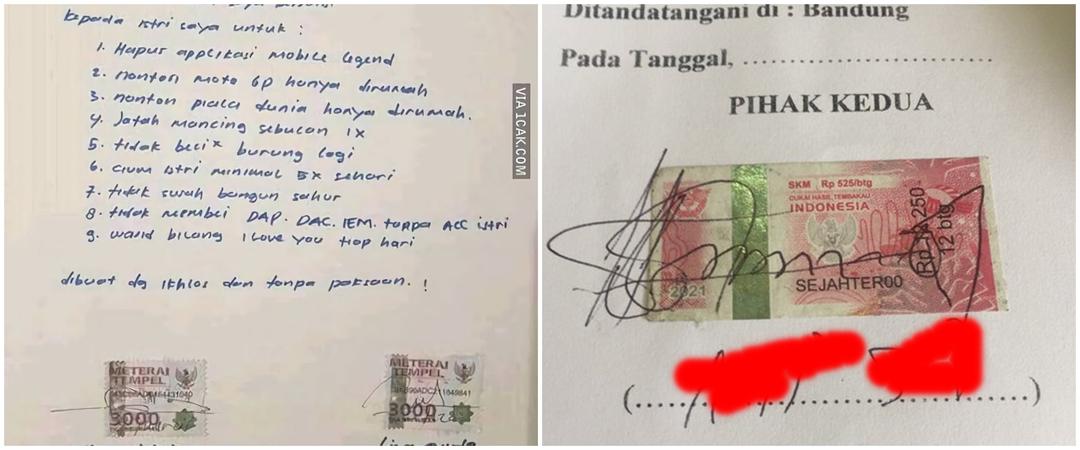 kepada istri saya untuk :
1. Hapus applikasi mobile legend
2. nonton moto GP hanya dirumah
3. nonton piala dunia hanya dirumah.
4. Jatah mancing sebulan 1x
5. tidak beli² burung lagi
6. cium istri minimal 5x sehari
7. tidak susah bangun sahur
8. tidak membeli DAP. DAC. IEM. tanpa ACC istri
9. wajib bilang I love you tiap hari
dibuat dg ikhlas dan tanpa paksaan. !
METERAI
TEMPEL
3000
METERAI
TEMPEL
3000
VIA 1CAK.COM
Ditandatangani di : Bandung
Pada Tanggal, ..............................
PIHAK KEDUA
SKM Rp 525/btg
CUKAI HASIL TEMBAKAU
INDONESIA
12 btg
2021
SEJAHTER00